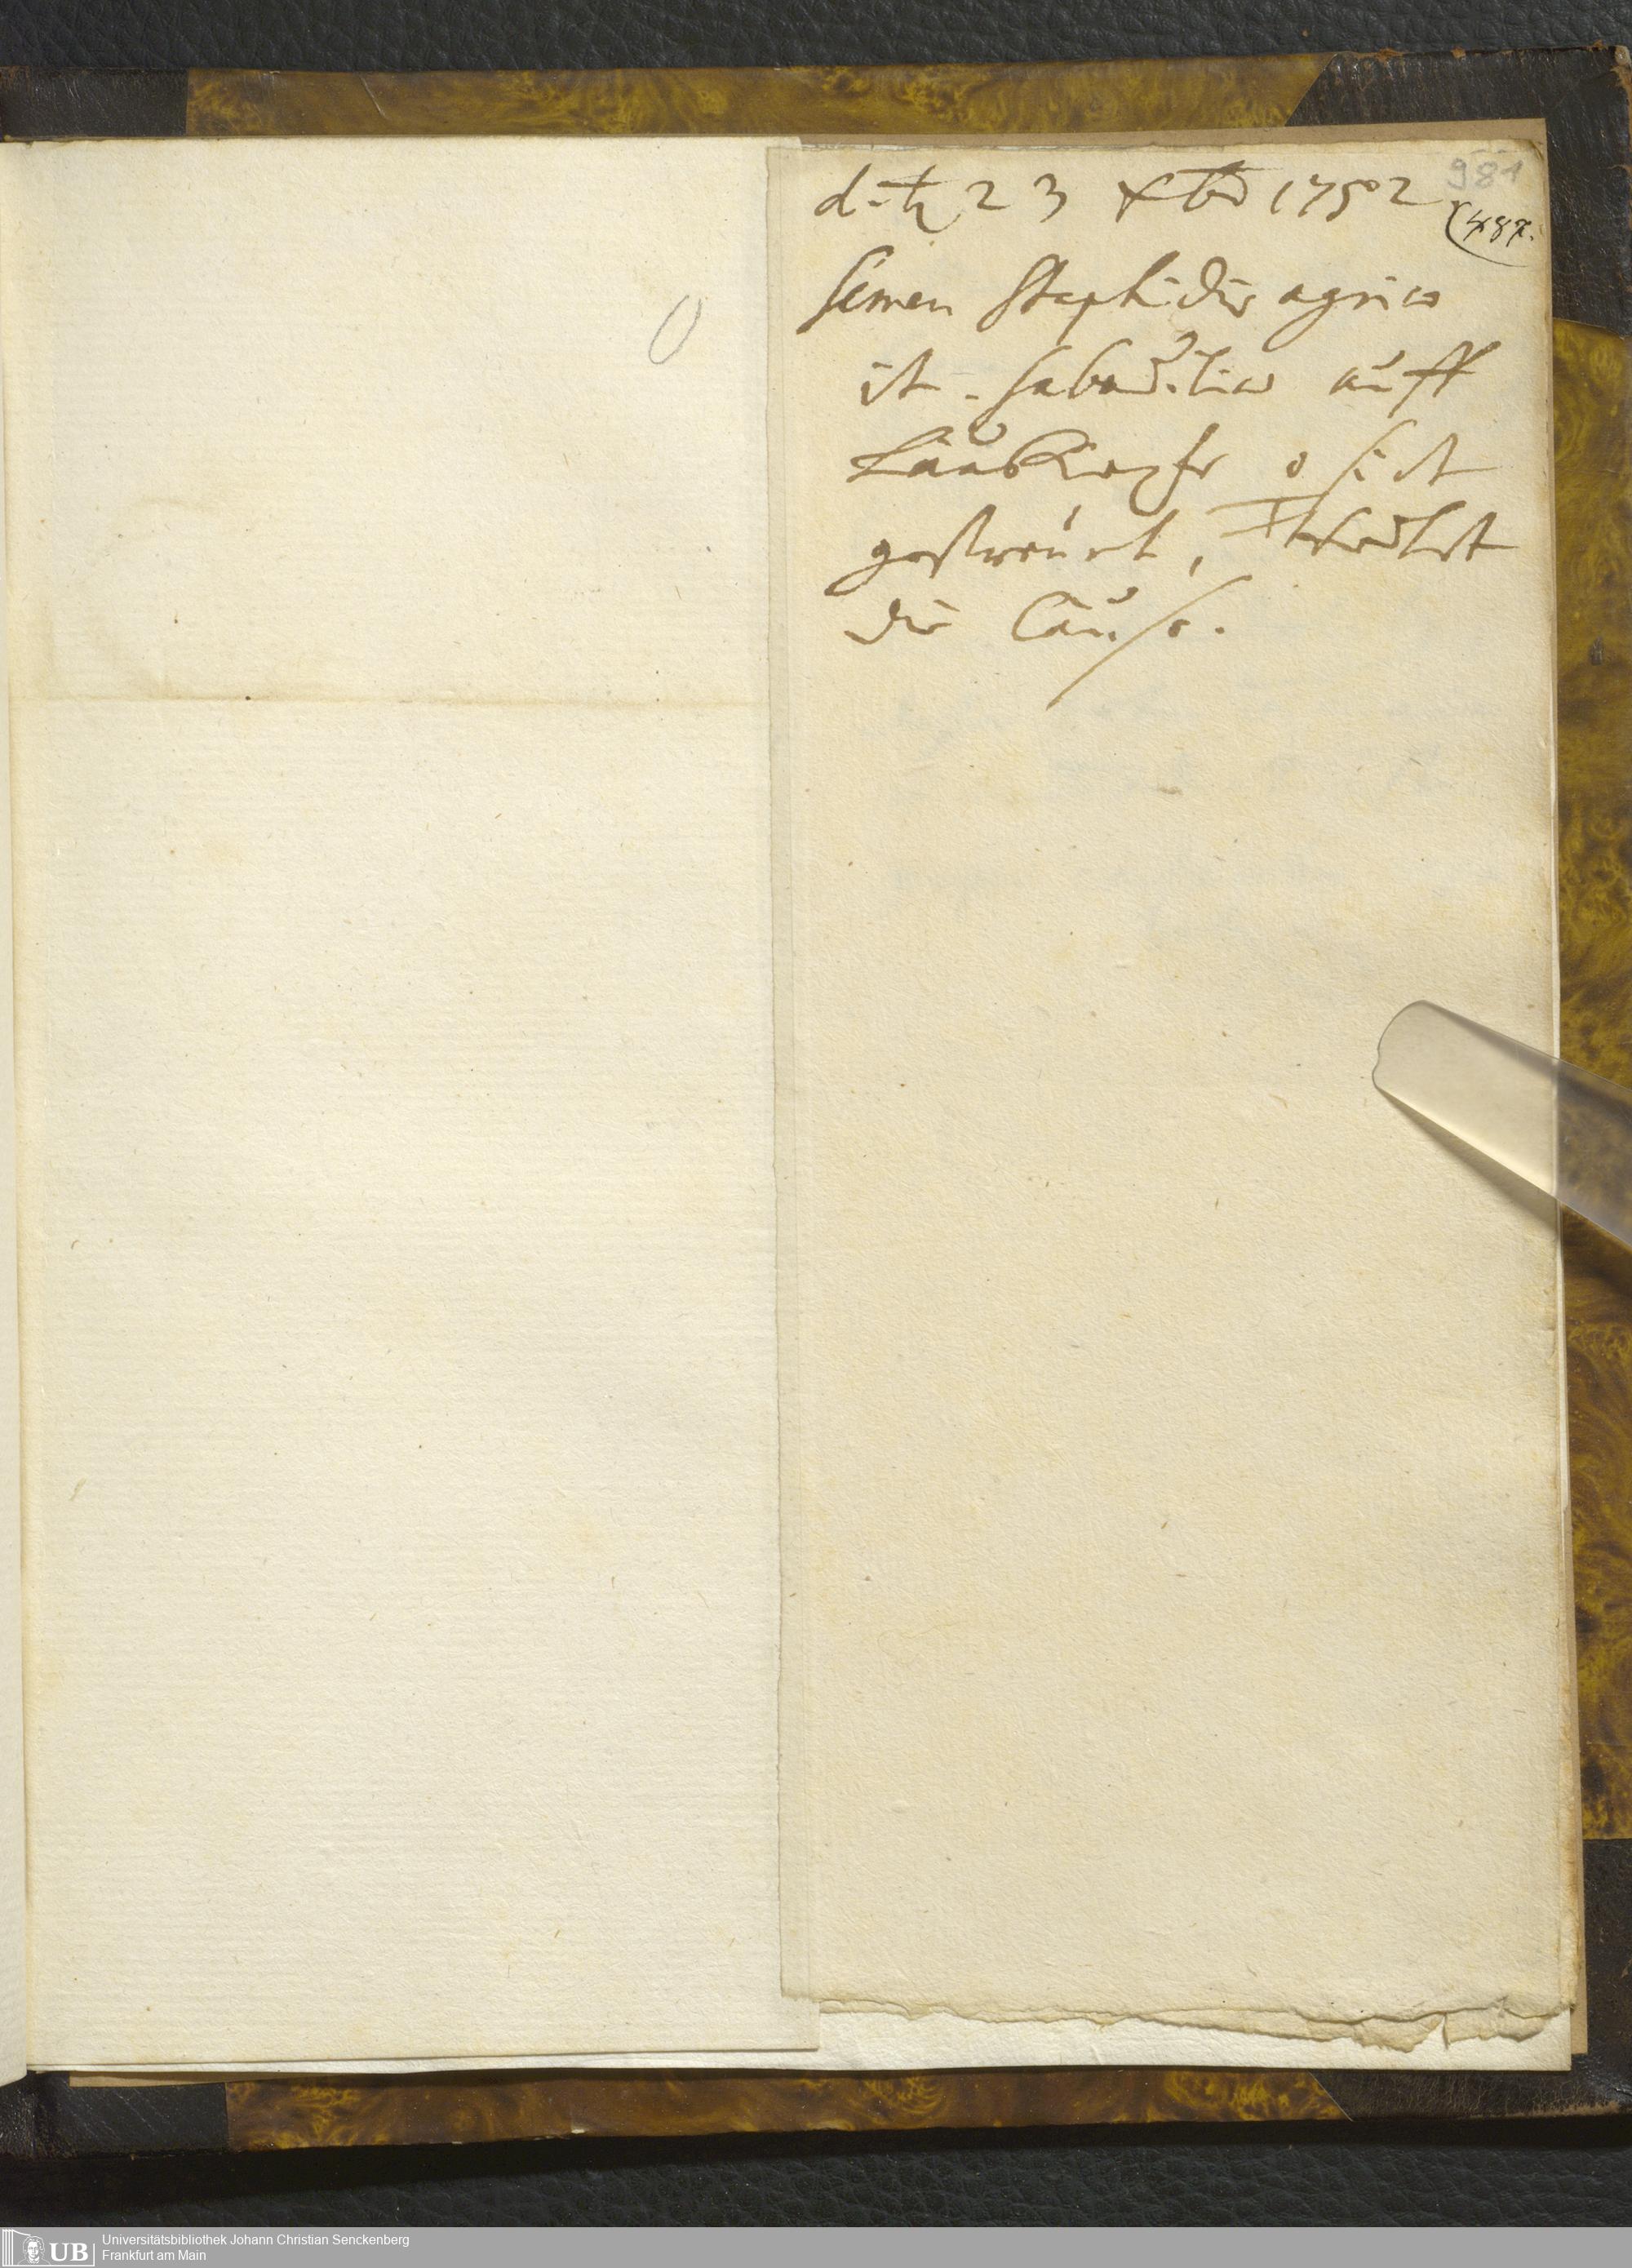 981
d. ♄ 23 Xbr 1752
(487.
Semen Staphidis agriae
it. sabadiliae auff
Lausköpfe
gestreuet, tödtet
die Läuse.
0
UB Universitätsbibliothek Johann Christian Senckenberg
Frankfurt am Main